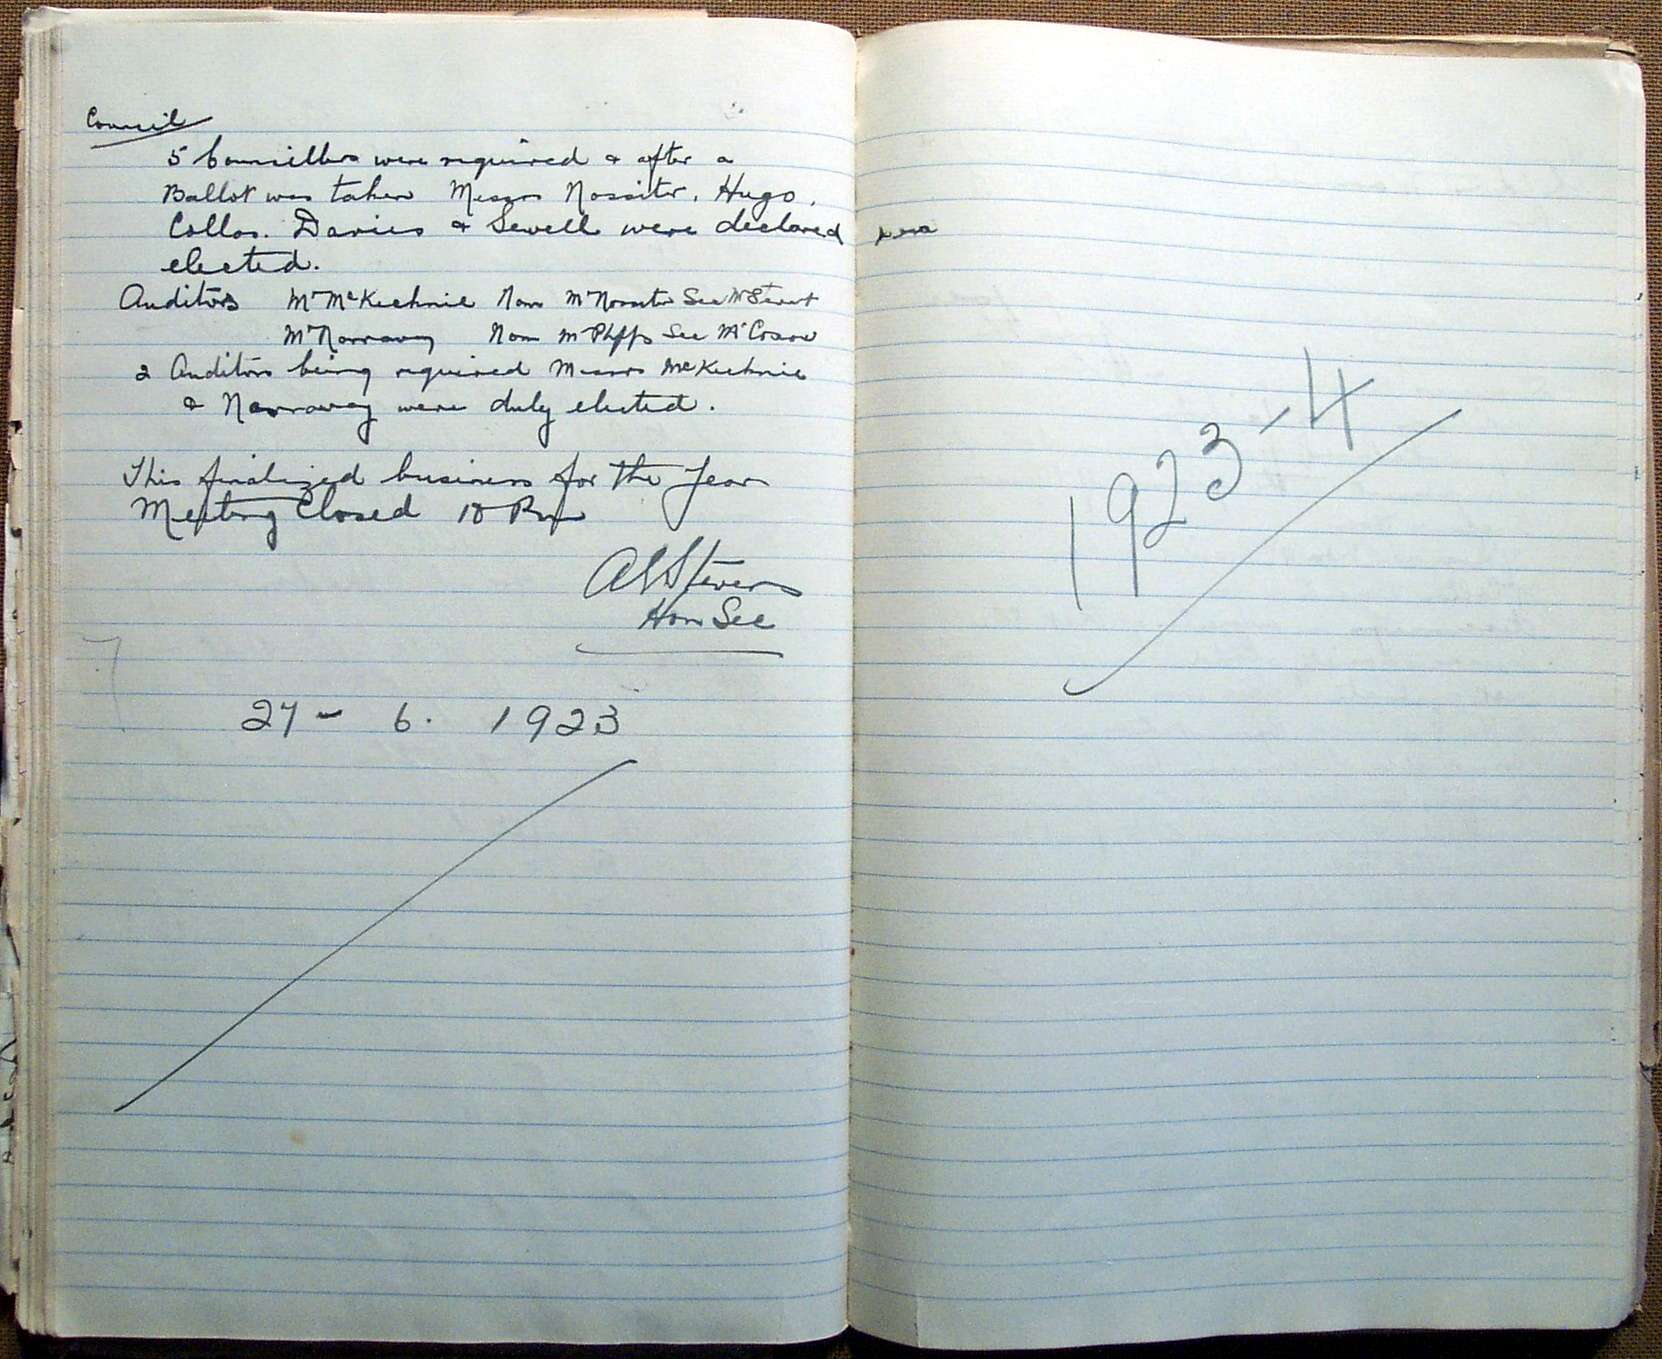 Council
5 Councillors were required & after a
Ballot was taken Messrs Rossiter, Hugo,
Collas. Davies & Sewell were declared
elected.
Auditors Mr McKechnie Nom Mr Rossiter Sec Mr
Mr Narraway Nom Mr Phpps Sec Mr
2 Auditors being required Messrs McKechnie
& Narraway were duly elected.
This finalized business for the Year
Meeting Closed 10 Pm
Stevens
Hon Sec
27 - 6. 1923
1923-4